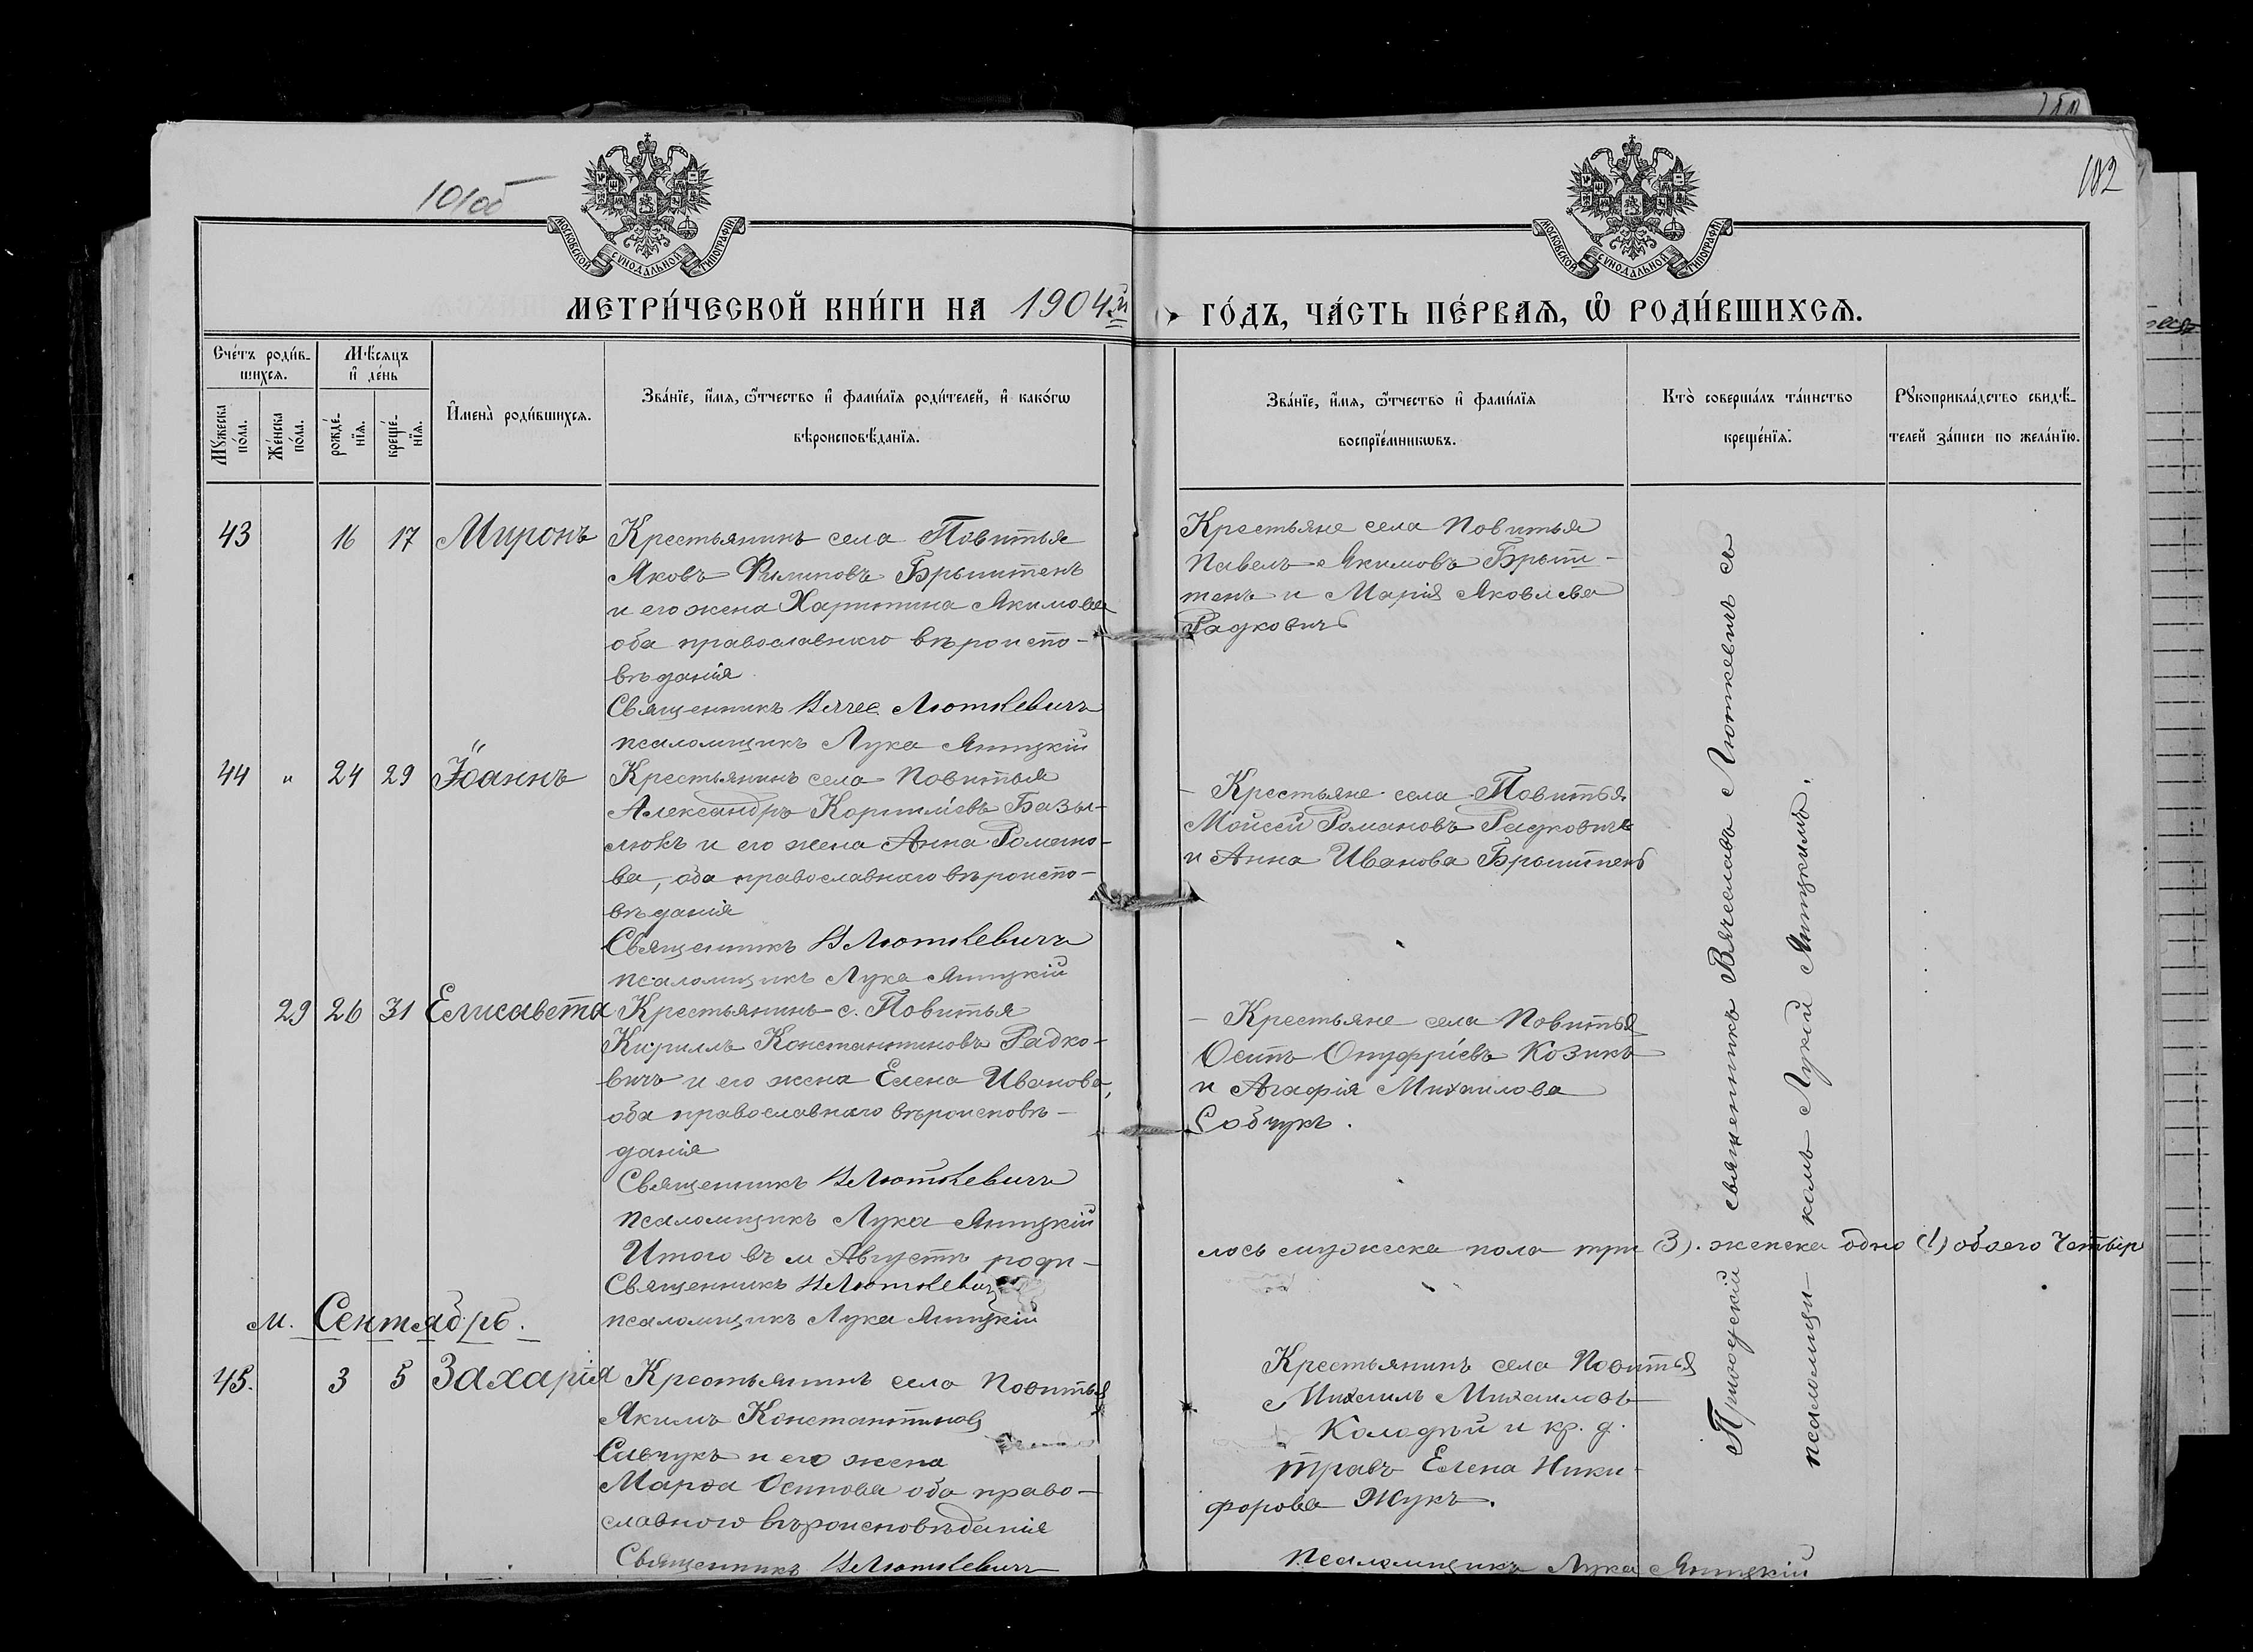 101об
102
МОСКОВСКОЙ СѴНОДАЛЬНОЙ ТИПОГРАФІИ
МОСКОВСКОЙ СѴНОДАЛЬНОЙ ТИПОГРАФІИ
МЕТРИ́ЧЕСКОЙ КНИ́ГИ НА 1904й ГО́ДЪ, ЧА́СТЬ ПЕ́РВАѦ, Ѡ҆ РОДИ́ВШИХСѦ.
Сче́тъ роди́в-
шихсѧ.
Мѣ́сѧцъ
и҆ де́нь
Мꙋ́жеска
по́ла.
Же́нска
по́ла.
рожде́-
нїѧ.
креще́-
нїѧ.
И҆мена̀ роди́вшихсѧ.
Зва́нїе, и҆́мѧ, ѻ҆́тчество и҆ фами́лїѧ роди́телей, и҆ како́гѡ
вѣроисповѣ́данїѧ.
Зва́нїе, и҆́мѧ, ѻ҆́тчество и҆ фами́лїѧ
воспрїе́мникѡвъ.
Кто̀ соверша́лъ та́инство
креще́нїѧ:
Рꙋкоприкла́дство свидѣ́-
телей за́писи по жела́нїю.
43 16 17 Миронъ
Крестьянинъ села Повитья
Яковъ Филиповъ Брыштенъ
и его жена Харитина Якимова
оба православнаго вѣроиспо-
вѣданія
Священникъ Вячес. Люткевичъ
псаломщикъ Лука Яницкій
Крестьяне села Повитья
Павелъ Якимовъ Брыш-
тенъ и Марія Яковлева
Радковичъ
44 " 24 29 Іоаннъ
Крестьянинъ села Повитья
Александръ Корниліевъ Базы-
люкъ и его жена Анна Романо-
ва, оба православнаго вѣроиспо-
вѣданія
Священникъ В Люткевичъ
псаломщикъ Лука Яницкій
Крестьяне села Повитья
Моисей Романовъ Радковичъ
и Анна Иванова Брыштенъ
29 26 31 Елисавета
Крестьянинъ с. Повитья
Кириллъ Константиновъ Радко-
вичъ и его жена Елена Иванова,
оба православнаго вѣроисповѣ-
данія
Священникъ В Люткевичъ
псаломщикъ Лука Яницкій
Крестьяне села Повитья
Осипъ Онуфріевъ Козикъ
и Агафія Михаилова
Собчукъ.
Итого въ м Августѣ роди-
лось мужеска пола три (3). женска одно (1) обоего Четыр
Священникъ В Люткевичъ
псаломщикъ Лука Яницкій
м. Сентябрь.
45. 3 5 Захарія
Крестьянинъ села Повитья
Якимъ Константиновъ
Савчукъ и его жена
Марѳа Осипова оба право-
славного вѣроисповѣданія
Священникъ В Люткевичъ
Крестьянинъ села Повитья
Михаилъ Михаиловъ
Колодѣй и кр. д.
Травъ Елена Ники-
форова Жукъ.
псаломщикъ Лука Яницкій
Приходскій священникъ Вячеславъ Люткевичъ съ
псаломщи- комъ Лукой Яницкимъ.